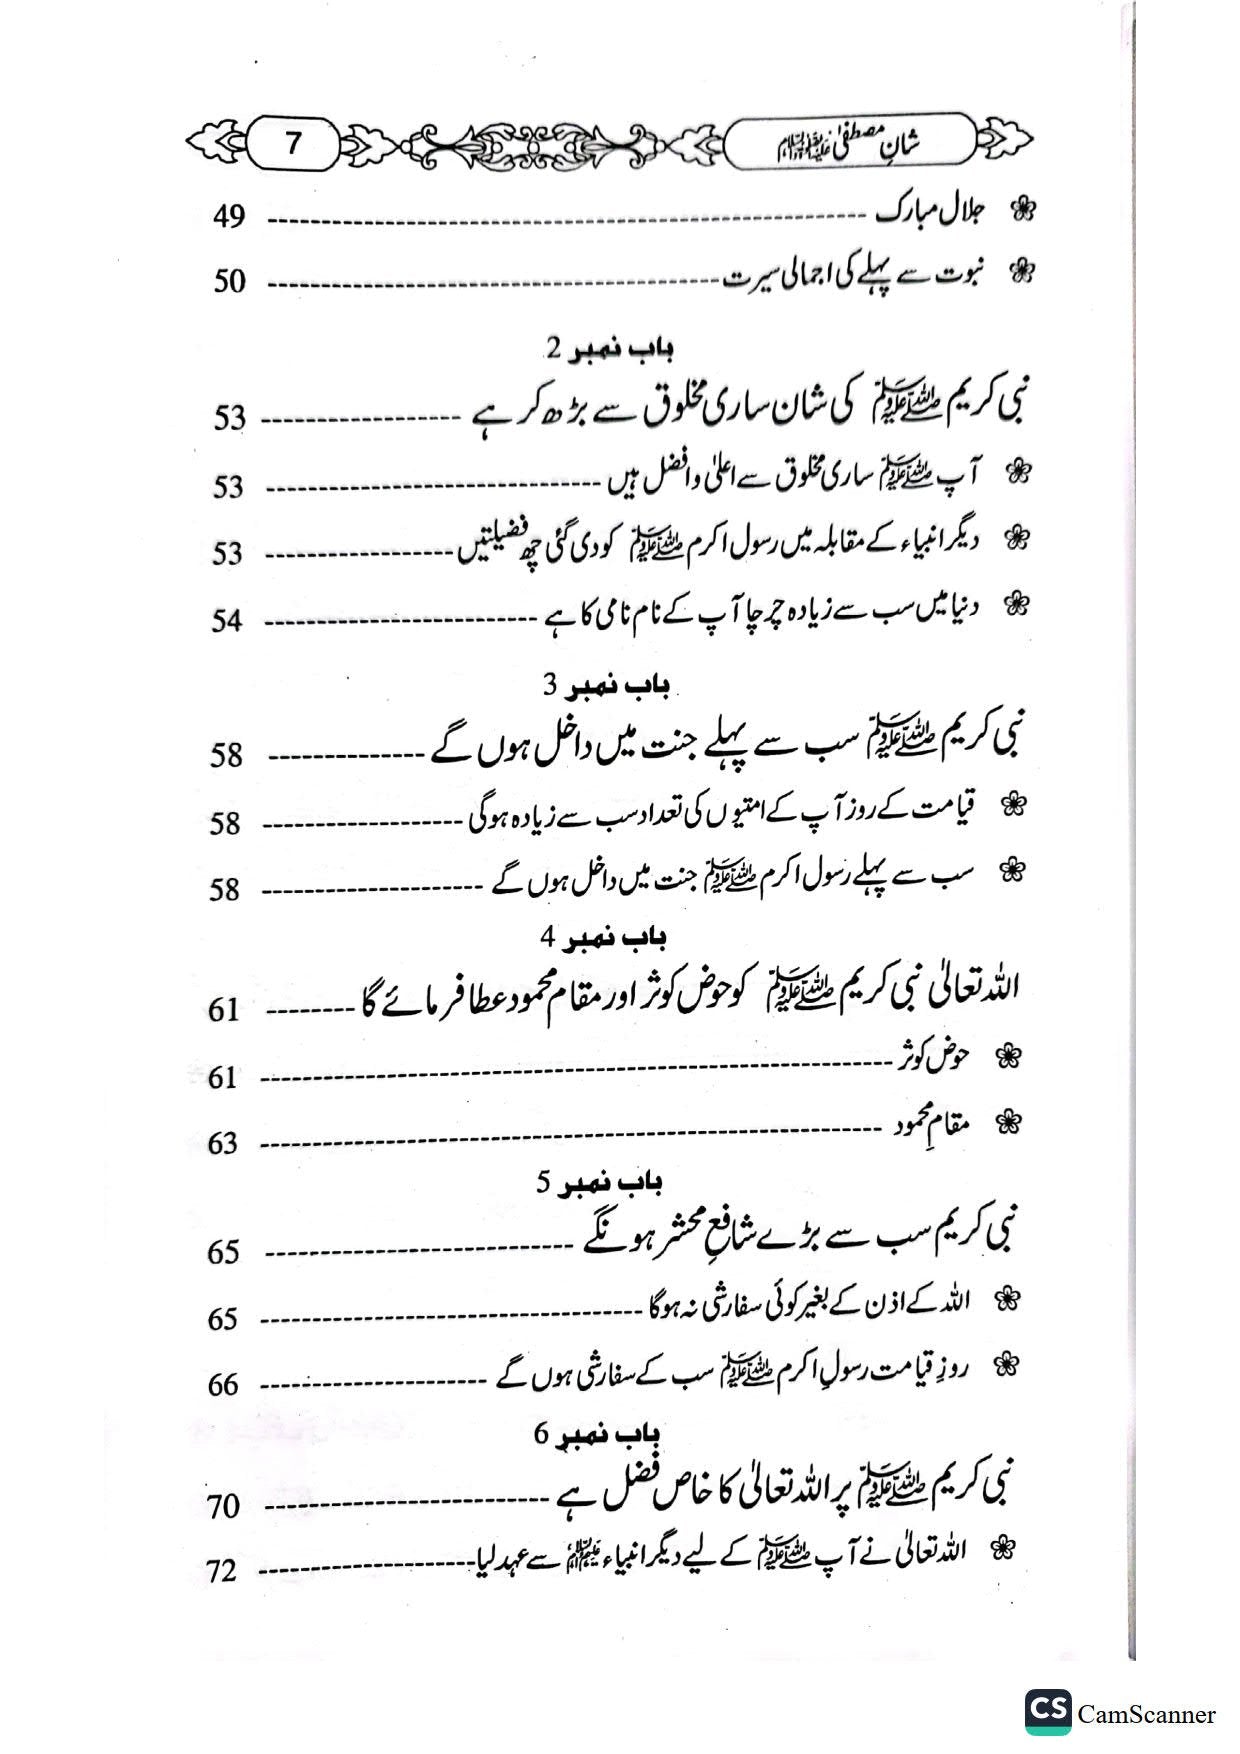 شانِ مصطفیٰ ﷺ 7
جلال مبارک ---------- 49
نبوت سے پہلے کی اجمالی سیرت ---------- 50
باب نمبر 2
نبی کریم ﷺ کی شان ساری مخلوق سے بڑھ کر ہے ---------- 53
آپ ﷺ ساری مخلوق سے اعلیٰ و افضل ہیں ---------- 53
دیگر انبیاء کے مقابلہ میں رسول اکرم ﷺ کو دی گئی چھ فضیلتیں ---------- 53
دنیا میں سب سے زیادہ چرچا آپ کے نام نامی کا ہے ---------- 54
باب نمبر 3
نبی کریم ﷺ سب سے پہلے جنت میں داخل ہوں گے ---------- 58
قیامت کے روز آپ کے امتیوں کی تعداد سب سے زیادہ ہوگی ---------- 58
سب سے پہلے رسول اکرم ﷺ جنت میں داخل ہوں گے ---------- 58
باب نمبر 4
اللہ تعالیٰ نبی کریم ﷺ کو حوض کوثر اور مقام محمود عطا فرمائے گا ---------- 61
حوض کوثر ---------- 61
مقامِ محمود ---------- 63
باب نمبر 5
نبی کریم سب سے بڑے شافعِ محشر ہونگے ---------- 65
اللہ کے اذن کے بغیر کوئی سفارشی نہ ہوگا ---------- 65
روزِ قیامت رسولِ اکرم ﷺ سب کے سفارشی ہوں گے ---------- 66
باب نمبر 6
نبی کریم ﷺ پر اللہ تعالیٰ کا خاص فضل ہے ---------- 70
اللہ تعالیٰ نے آپ ﷺ کے لیے دیگر انبیاء علیہم السلام سے عہد لیا ---------- 72
CS CamScanner